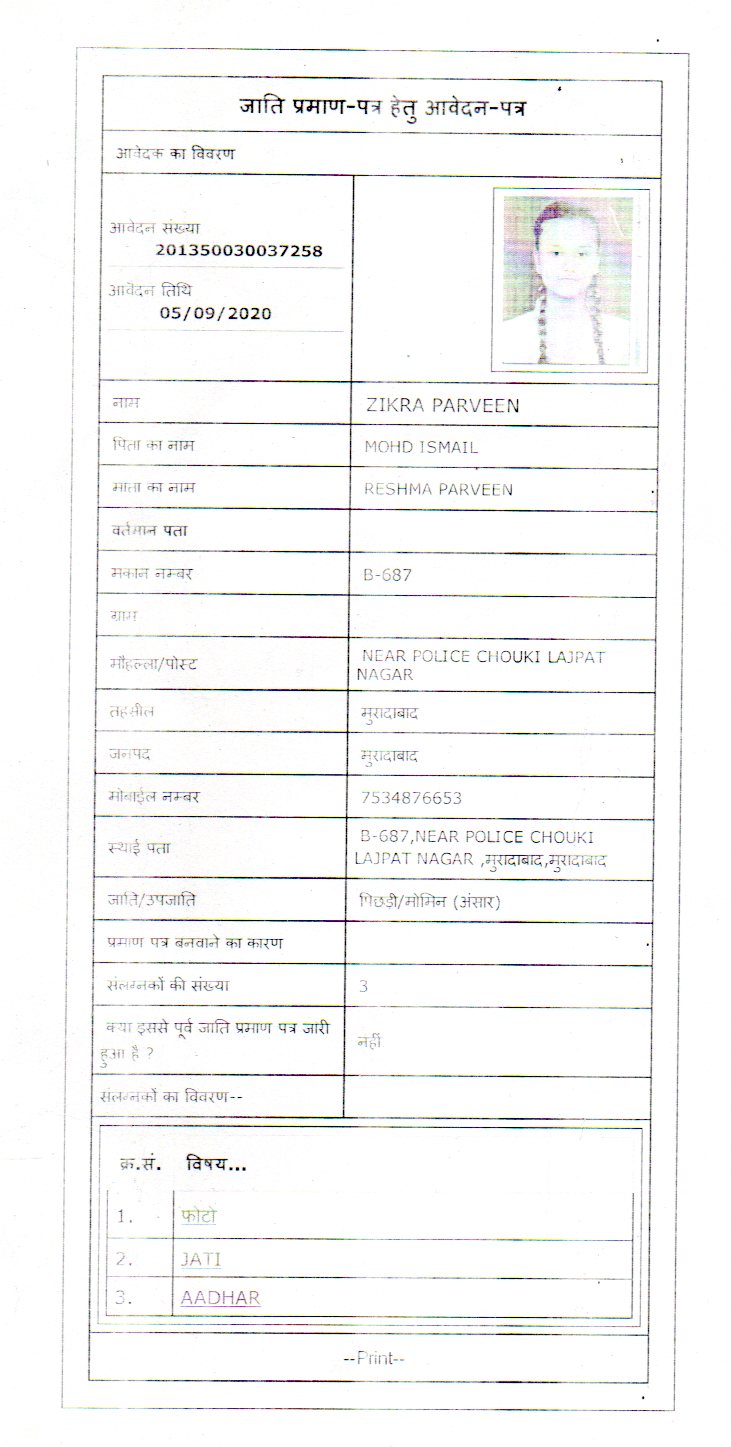 जाति प्रमाण-पत्र हेतु आवेदन-पत्र
आवेदक का विवरण
आवेदन संख्या
201350030037258
आवेदन तिथि
05/09/2020
नाम ZIKRA PARVEEN
पिता का नाम MOHD ISMAIL
माता का नाम RESHMA PARVEEN
वर्तमान पता
मकान नम्बर B-687
ग्राम
मौहल्ला/पोस्ट NEAR POLICE CHOUKI LAJPAT
NAGAR
तहसील मुरादाबाद
जनपद मुरादाबाद
मोबाईल नम्बर 7534876653
स्थाई पता B-687,NEAR POLICE CHOUKI
LAJPAT NAGAR ,मुरादाबाद,मुरादाबाद
जाति/उपजाति पिछड़ी/मोमिन (अंसार)
प्रमाण पत्र बनवाने का कारण
संलग्नकों की संख्या 3
क्या इससे पूर्व जाति प्रमाण पत्र जारी
हुआ है ? नहीं
संलग्नकों का विवरण--
क्र.सं. विषय...
1. फोटो
2. JATI
3. AADHAR
--Print--